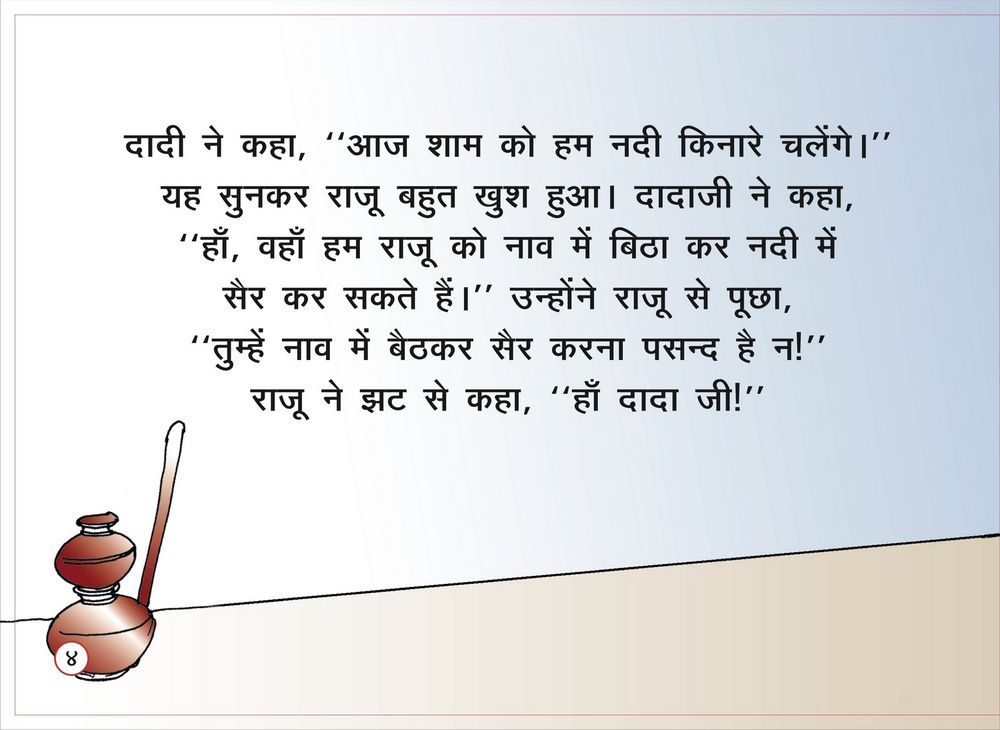 दादी ने कहा, ‘‘आज शाम को हम नदी किनारे चलेंगे।’’
यह सुनकर राजू बहुत खुश हुआ। दादाजी ने कहा,
‘‘हाँ, वहाँ हम राजू को नाव में बिठा कर नदी में
सैर कर सकते हैं।’’ उन्होंने राजू से पूछा,
‘‘तुम्हें नाव में बैठकर सैर करना पसन्द है न!’’
राजू ने झट से कहा, ‘‘हाँ दादा जी!’’
४